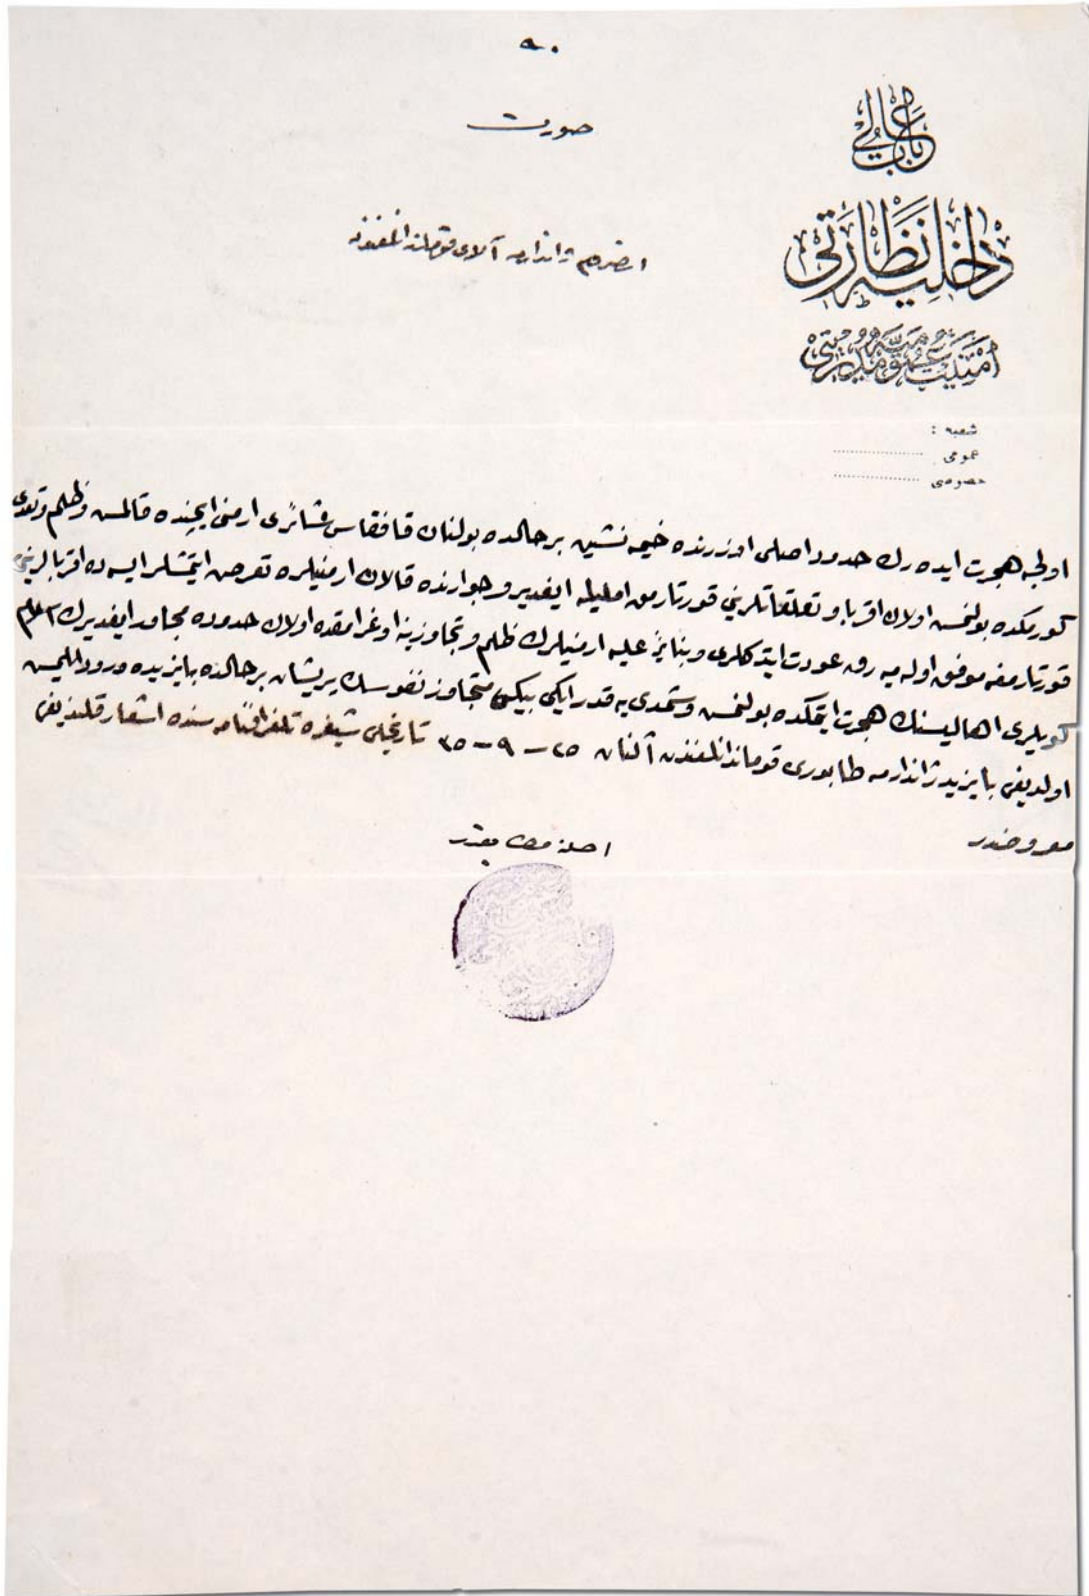 ٩٠
باب عالی
داخلیه نظارتی
امنیت عمومیه مدیریتی
شعبه :
عمومی
خصوصی
صورت
ارضروم ژاندارمه آلای قوماندانلغنه
اولجه هجرت ایده رك حدود اصلی اوزرنده خیمه نشین بر حالده بولنان قافقاس عشائری ارمنی ایچنده قالمش و ظلم و تعدی
كورمكده بولنمش اولان اقربا و تعلقاتلرینی قورتارمق املیله ایغدیر و جوارنده قالان ارمنیلره تعرض ایتمشلر ایسه ده اقربالرینی
قورتارمغه موفق اوله میه رق عودت ایتدكلری و بناءً علیه ارمنیلرك ظلم و تجاوزینه اوغرامقده اولان حدوده مجاور ایغدیرك اسلام
كویلری اهالیسنك هجرت ایتمكده بولنمش و شمدی یه قدر ایكی بیكی متجاوز نفوسك پریشان بر حالده بایزیده ورود ایلمش
اولدیغی بایزید ژاندارمه طابوری قوماندانلغندن آلنان ٢٥ - ٩ - ٣٥ تاریخلی شیفره تلغرافنامه سنده اشعار قلندیغی
معروضدر
اصلنه مطابقدر